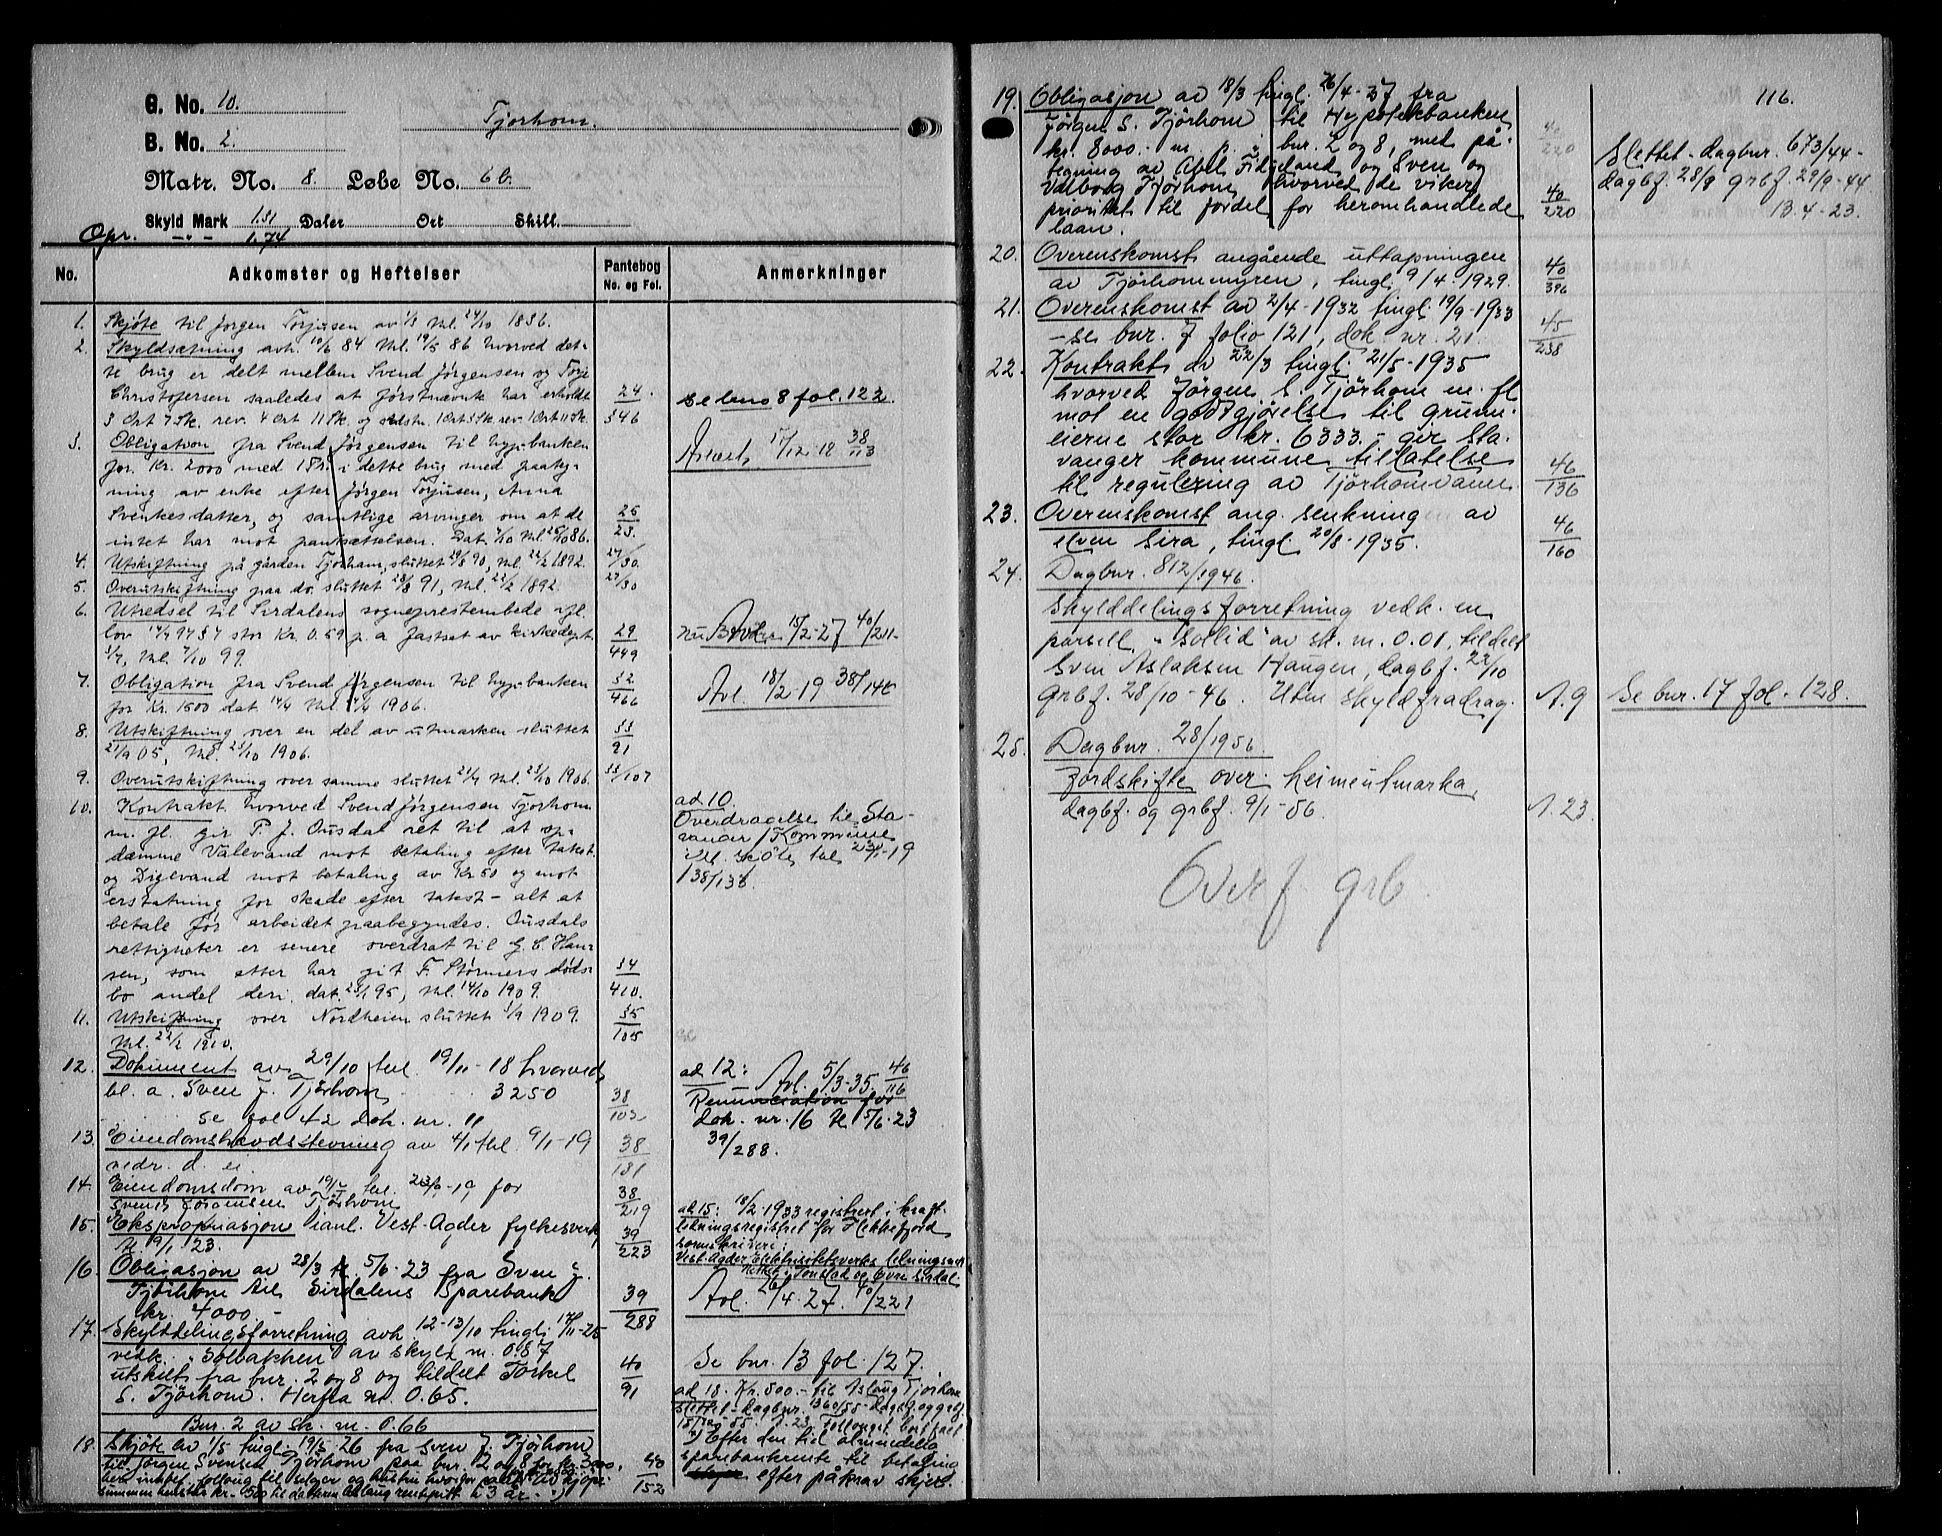 G. No. 10.
Tjorhom.
B. No. 2.
Matr. No. 8. Løbe No. 6b.
Skyld Mark 1.51 Daler Ort Skill.
Opr. 1.74
No. Adkomster og Heftelser Pantebog No. og Fol. Anmerkninger
1. Skjøte til Jørgen Torjusen av 1/3 thl. 24/10 1836.
2. Skyldsætning avh. 10/6 84 thl. 19/5 86 hvorved det-
te brug er delt mellem Svend Jørgensen og Torje
Christofersen saaledes at førstnævnte har erholdt 24
3 Ort 7 Sk. rev. 4 Ort 11 Sk. og sidstn. 1 Ort 5 Sk. rev. 1 Ort 11 Sk. 546
se bno 8 fol. 122.
3. Obligation fra Svend Jørgensen til hyp.banken
for Kr. 2000 med 1 Pr. i dette brug med paateg-
Avlæst 17/12-18 38/113
ning av enke efter Jørgen Torjusen, Anna
Svenkesdatter, og samtlige arvinger om at de 25
intet har mot pantsættelsen. Dat. 7/10 thl 25/10 86. 25.
4. Utskiftning på gården Tjorham, sluttet 29/8 90, thl. 22/2 1892. 27/30.
5. Overutskiftning paa do. sluttet 28/8 91, thl. 22/2 1892. 27/30
6. Utredsel til Sirdalens sogneprestembede ifl.
lov 14/7 94 § 7 stor Kr. 0.59 p. a. fastsat av kirkedept. 29
5/7, thl. 7/10 99. 449
15/2-27 40/211-
7. Obligation fra Svend Jørgensen til hyp.banken 32
for Kr. 1500 dat. 14/4 thl. 1906. 466
Avl. 18/2-19 38/146
8. Utskiftning over en del av utmarken sluttet 33
21/9 05, thl. 25/10 1906. 91
9. Overutskiftning over samme sluttet 21/9 thl. 25/10 1906. 33/107
10. Kontrakt hvorved Svend Jørgensen Tjorhom
m. fl. gir P. J. Ousdal ret til at op-
dæmme Valevand mot betaling efter takst.
og Digevand mot betaling av Kr 50 og mot
erstatning for skade efter takst - alt at
betale før arbeidet paabegyndes. Ousdals
rettigheter er senere overdrat til G. C. Han-
sen, som atter har git F. Størmers døds- 34
bo andel deri, dat. 95, thl. 14/10 1909. 410.
ad 10.
Overdragelse til Sta-
vanger Kommune
38/138.
11. Utskiftning over Nordheien sluttet 1/9 1909. 35
thl. 22/2 1910. 105
12. Dokument av 29/10 thl. 19/11-18 hvorved
bl. a. Sven J. Tjørhom 3250 38
se fol 42 dok. nr. 11 103
ad 12: Avl. 5/3-35. 46/116
Renunciation for
dok. nr. 16 tl 5/6-23
39/288.
13. Eiendomshævdsstevning av 4/1 thl. 9/1-19 38
vedr. d. ei. 131
14. Eiendomsdom av thl. for 38
Svend Jörgensen Tjørhom 219
15. Ekspropriasjon ianl. Vest-Agder fylkesverk 39
tl 9/1 23. 223
ad 15: 18/2 1933 registrert i kraft-
ledningsregistret for Flekkefjord
sorenskriveri:
Vest-Agder Elektrisitetsverks ledningsnet
Tonstad og Øvre Sirdal.
16. Obligasjon av 28/3 tl. 5/6-23 fra Sven J.
Tjørhom til Sirdalens Sparebank 39
kr. 4000.- 288
Avl. 26/4-27. 40/221
17. Skylddelingsforretning avh. 12-13/10 tingl. 17/11-25
vedk. "Solbakken" av skyld m. 0.87 40
utskilt fra bnr. 2 og 8 og tildelt Torkel 91
S. Tjørhom. Herfra m. 0.65.
Se bnr. 13 fol. 127.
Bnr. 2 av sk. m. 0.66
18. Skjøte av 1/5 tingl. 19/5-26 fra Sven J. Tjørhom
til Jørgen Svensen Tjørhom paa bnr. 2 og 8 for kr. 3000, 40
152
summen henstår kr. 500 til datteren Aslaug rentefritt i 3 år.
ad 18. Kr. 500.- til Aslaug Tjørhom
slettet - dagbnr. 1360/55
Efter den tid almindelig
sparebankrente til betaling
efter påkrav skjer.
116.
19. Obligasjon av 18/3 tingl. 26/4-27 fra
Jørgen S. Tjørhom til Hypotekbanken 40/220
kr. 8000.- m. p. i bnr. 2 og 8, med på-
tegning av Abel Fidjeland og Sven og
Valborg Tjørhom hvorved de viker
prioritet til fordel for heromhandlede 40/220
laan.
Slettet - dagbnr. 673/44-
dagbf. 28/9 grbf. 29/9-44
13.4-23.
20. Overenskomst angående uttapningen
av Tjørhommyren, tingl. 9/4-1929. 40/396
21. Overenskomst av 2/4-1932 tingl. 19/9-1933
- se bnr. 7 folio 121, dok. nr. 21. 45/238
22. Kontrakt av 22/3 tingl. 21/5-1935
hvorved Jörgen S. Tjørhom m. fl
mot en godtgjörelse til grunn-
eierne stor kr. 6333.- gir Sta-
vanger kommune tillatelse 46
til regulering av Tjørhomvann 136
23. Overenskomst ang. senkning av 46
elven Sira, tingl. 20/8-1935. 160
24. Dagbnr. 812/1946.
Skylddelingsforretning vedk. en
parsell, "Sollid" av sk. m. 0.01, tildelt
Sven Aslaksen Haugen, dagbf. 22/10
grbf. 28/10-46. Uten skyldfradrag. A. 9 Se bnr. 17 fol. 128.
25. Dagbnr. 28/1956
Jordskifte over heimeutmarka,
dagbf. og grbf. 9/1-56. A. 23.
Overf grb